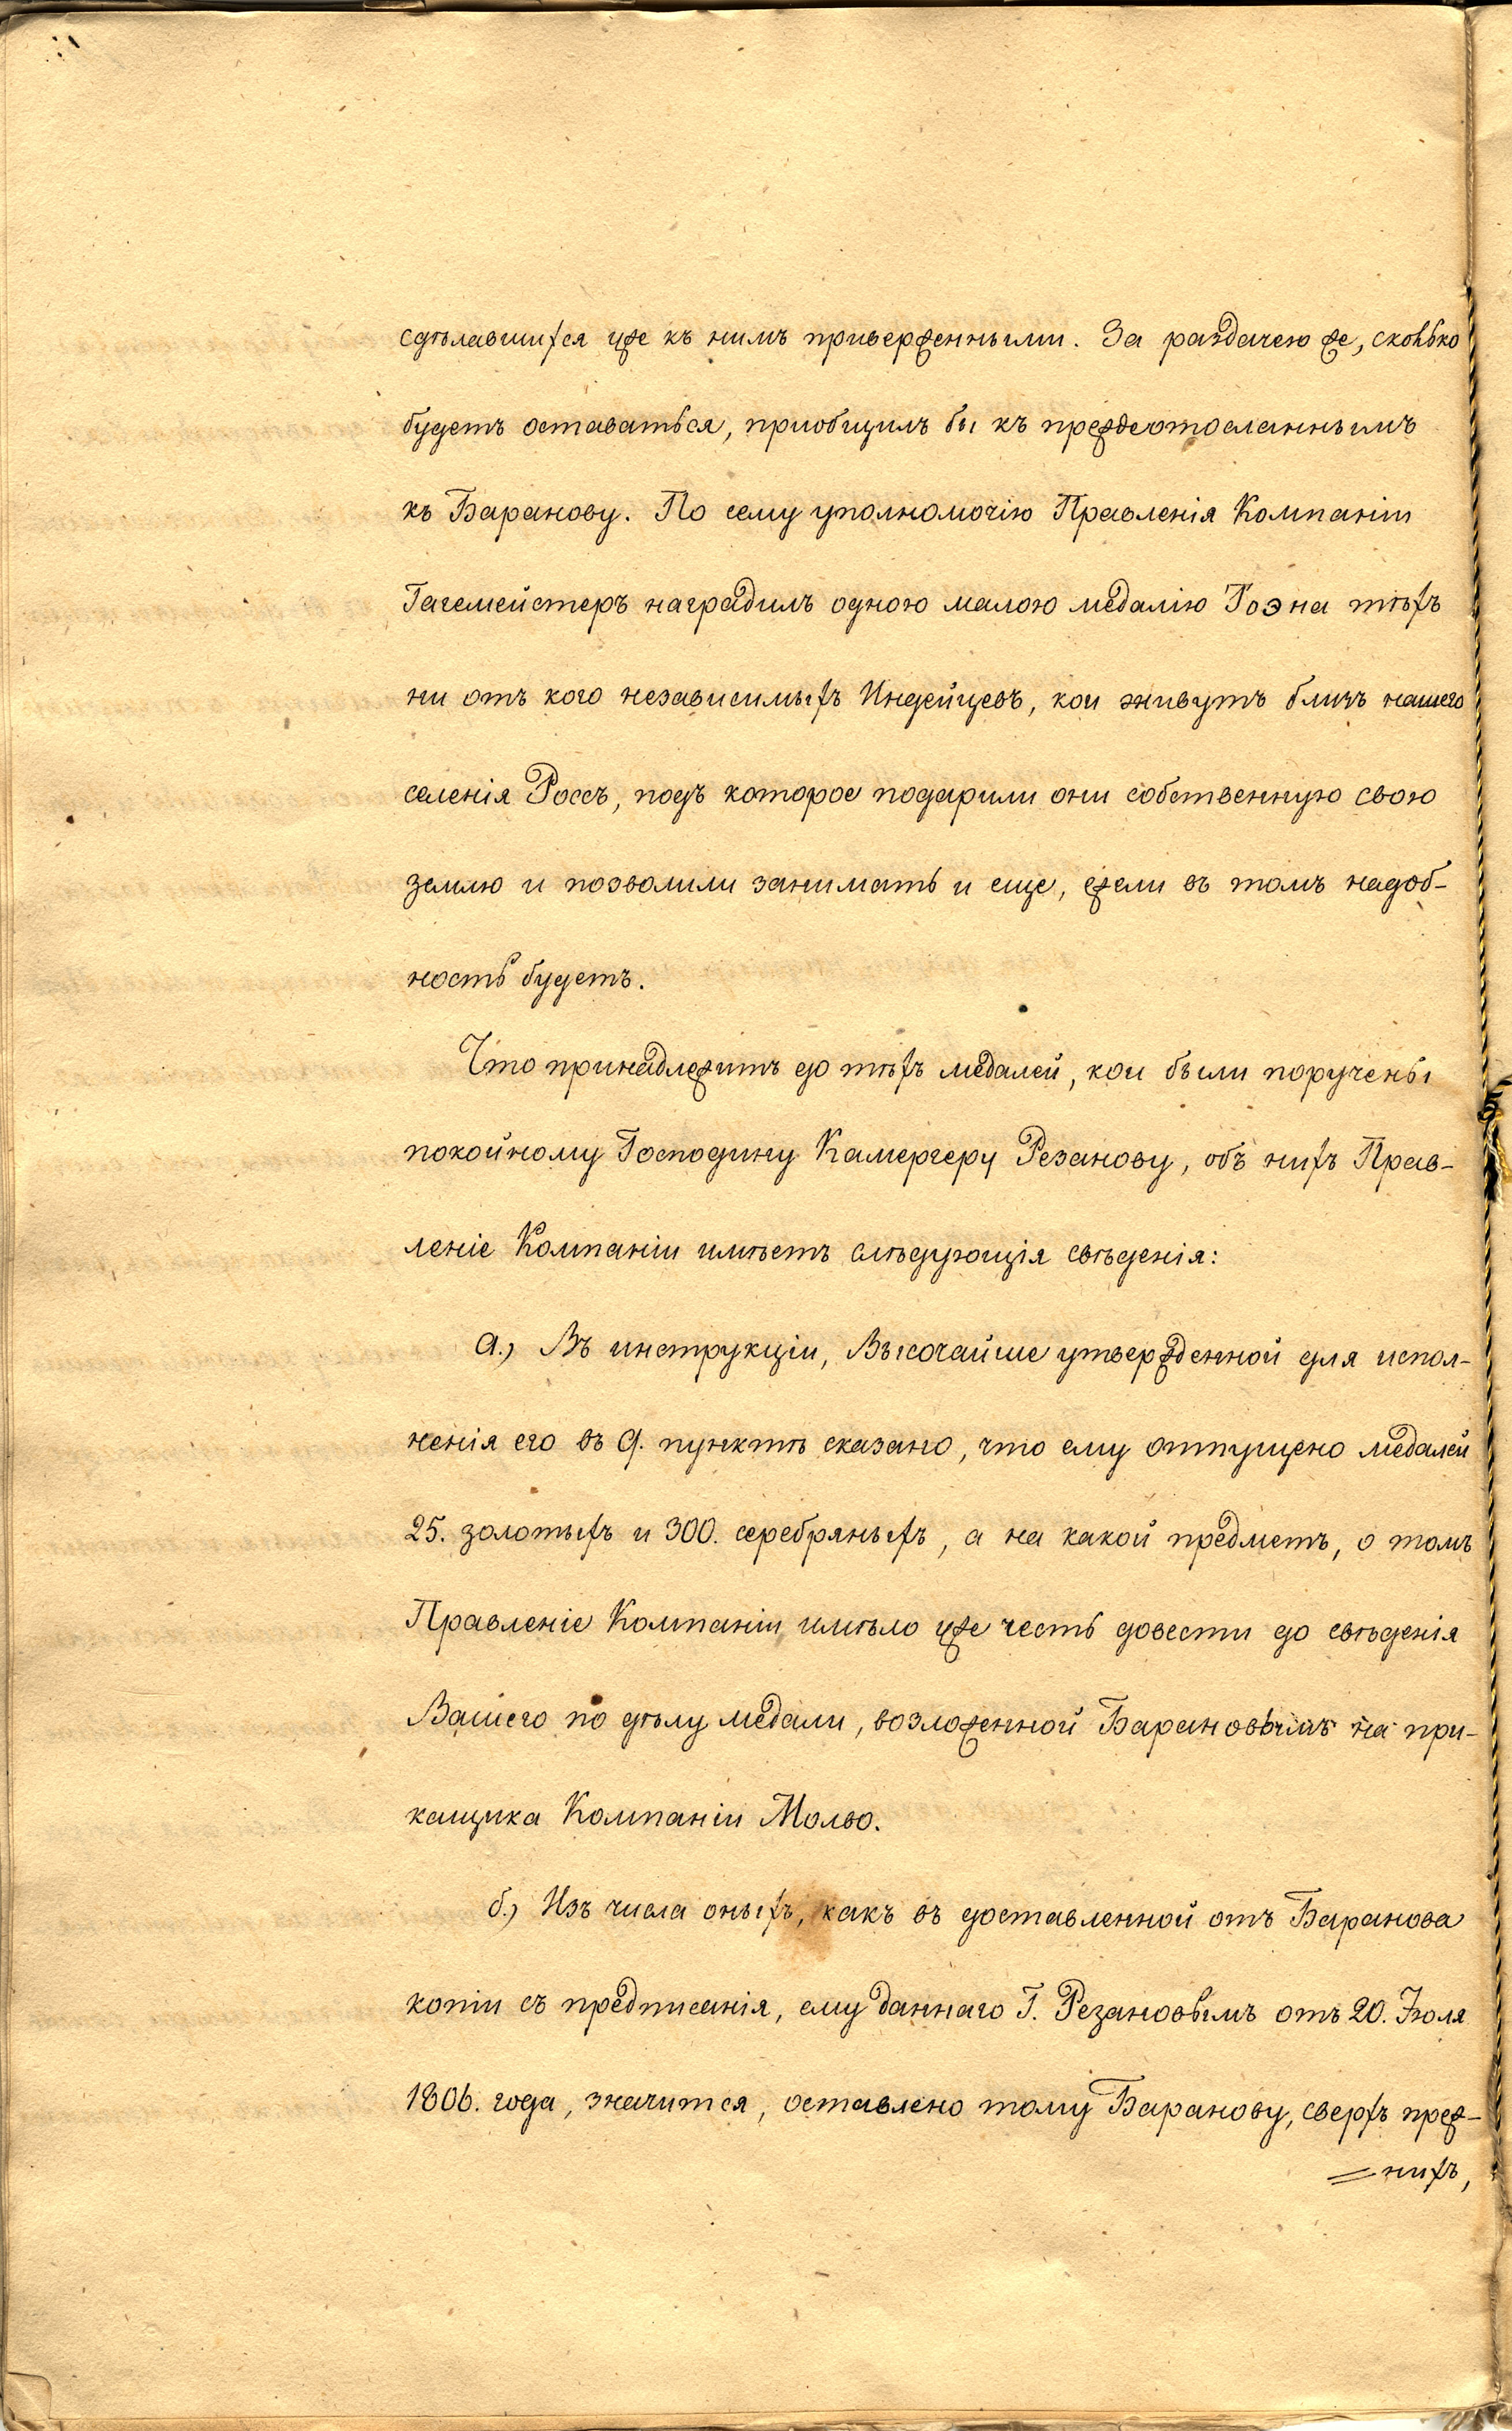 сдѣлавшихся уже къ нимъ приверженными. За раздачею же, сколько
будетъ оставаться, приобщилъ бы къ преждеотосланнымъ
къ Баранову. По сему уполномочію Правленія Компаніи
Гагемейстеръ наградилъ одною малою медалію Тоэна тѣхъ
ни отъ кого независимыхъ Индейцевъ, кои живутъ близъ нашего
селенія Россъ, подъ которое подарили они собственную свою
землю и позволили занимать и еще, ежели въ томъ надоб-
ность будетъ.
Что принадлежитъ до тѣхъ медалей, кои были поручены
покойному Господину Камергеру Резанову, объ нихъ Прав-
леніе Компаніи имѣетъ слѣдующія свѣденія:
а.) Въ инструкціи, Высочайше утвержденной для испол-
ненія его въ 9. пунктѣ сказано, что ему отпущено медалей
25. золотыхъ и 300. серебряныхъ, а на какой предметъ, о томъ
Правленіе Компаніи имѣло уже честь довести до свѣденія
Вашего по дѣлу медали, возложенной Барановымъ на при-
кащика Компаніи Мольво.
б.) Изъ числа оныхъ, какъ въ доставленной отъ Баранова
копіи съ предписанія, ему даннаго Г. Резановымъ отъ 20. Іюля
1806. года, значится, оставлено тому Баранову, сверхъ преж-
= нихъ,